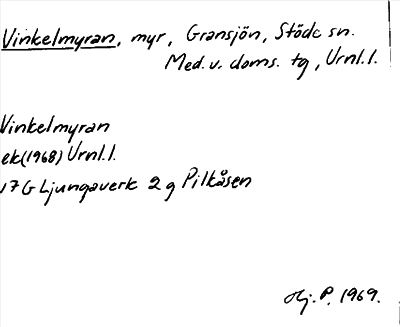 Vinkelmyran, myr, Gransjön, Stöde sn.
Med. v. doms. tg, Urnl. l.
Vinkelmyran
ek(1968) Urnl. l.
17G Ljungaverk 2 g Pilkåsen
Hj. P. 1969.